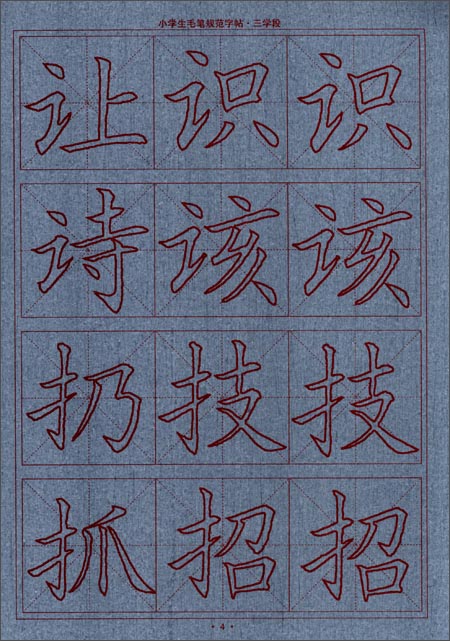 小学生毛笔规范字帖·三学段
让识识
诗该该
扔技技
抓招招
·4·